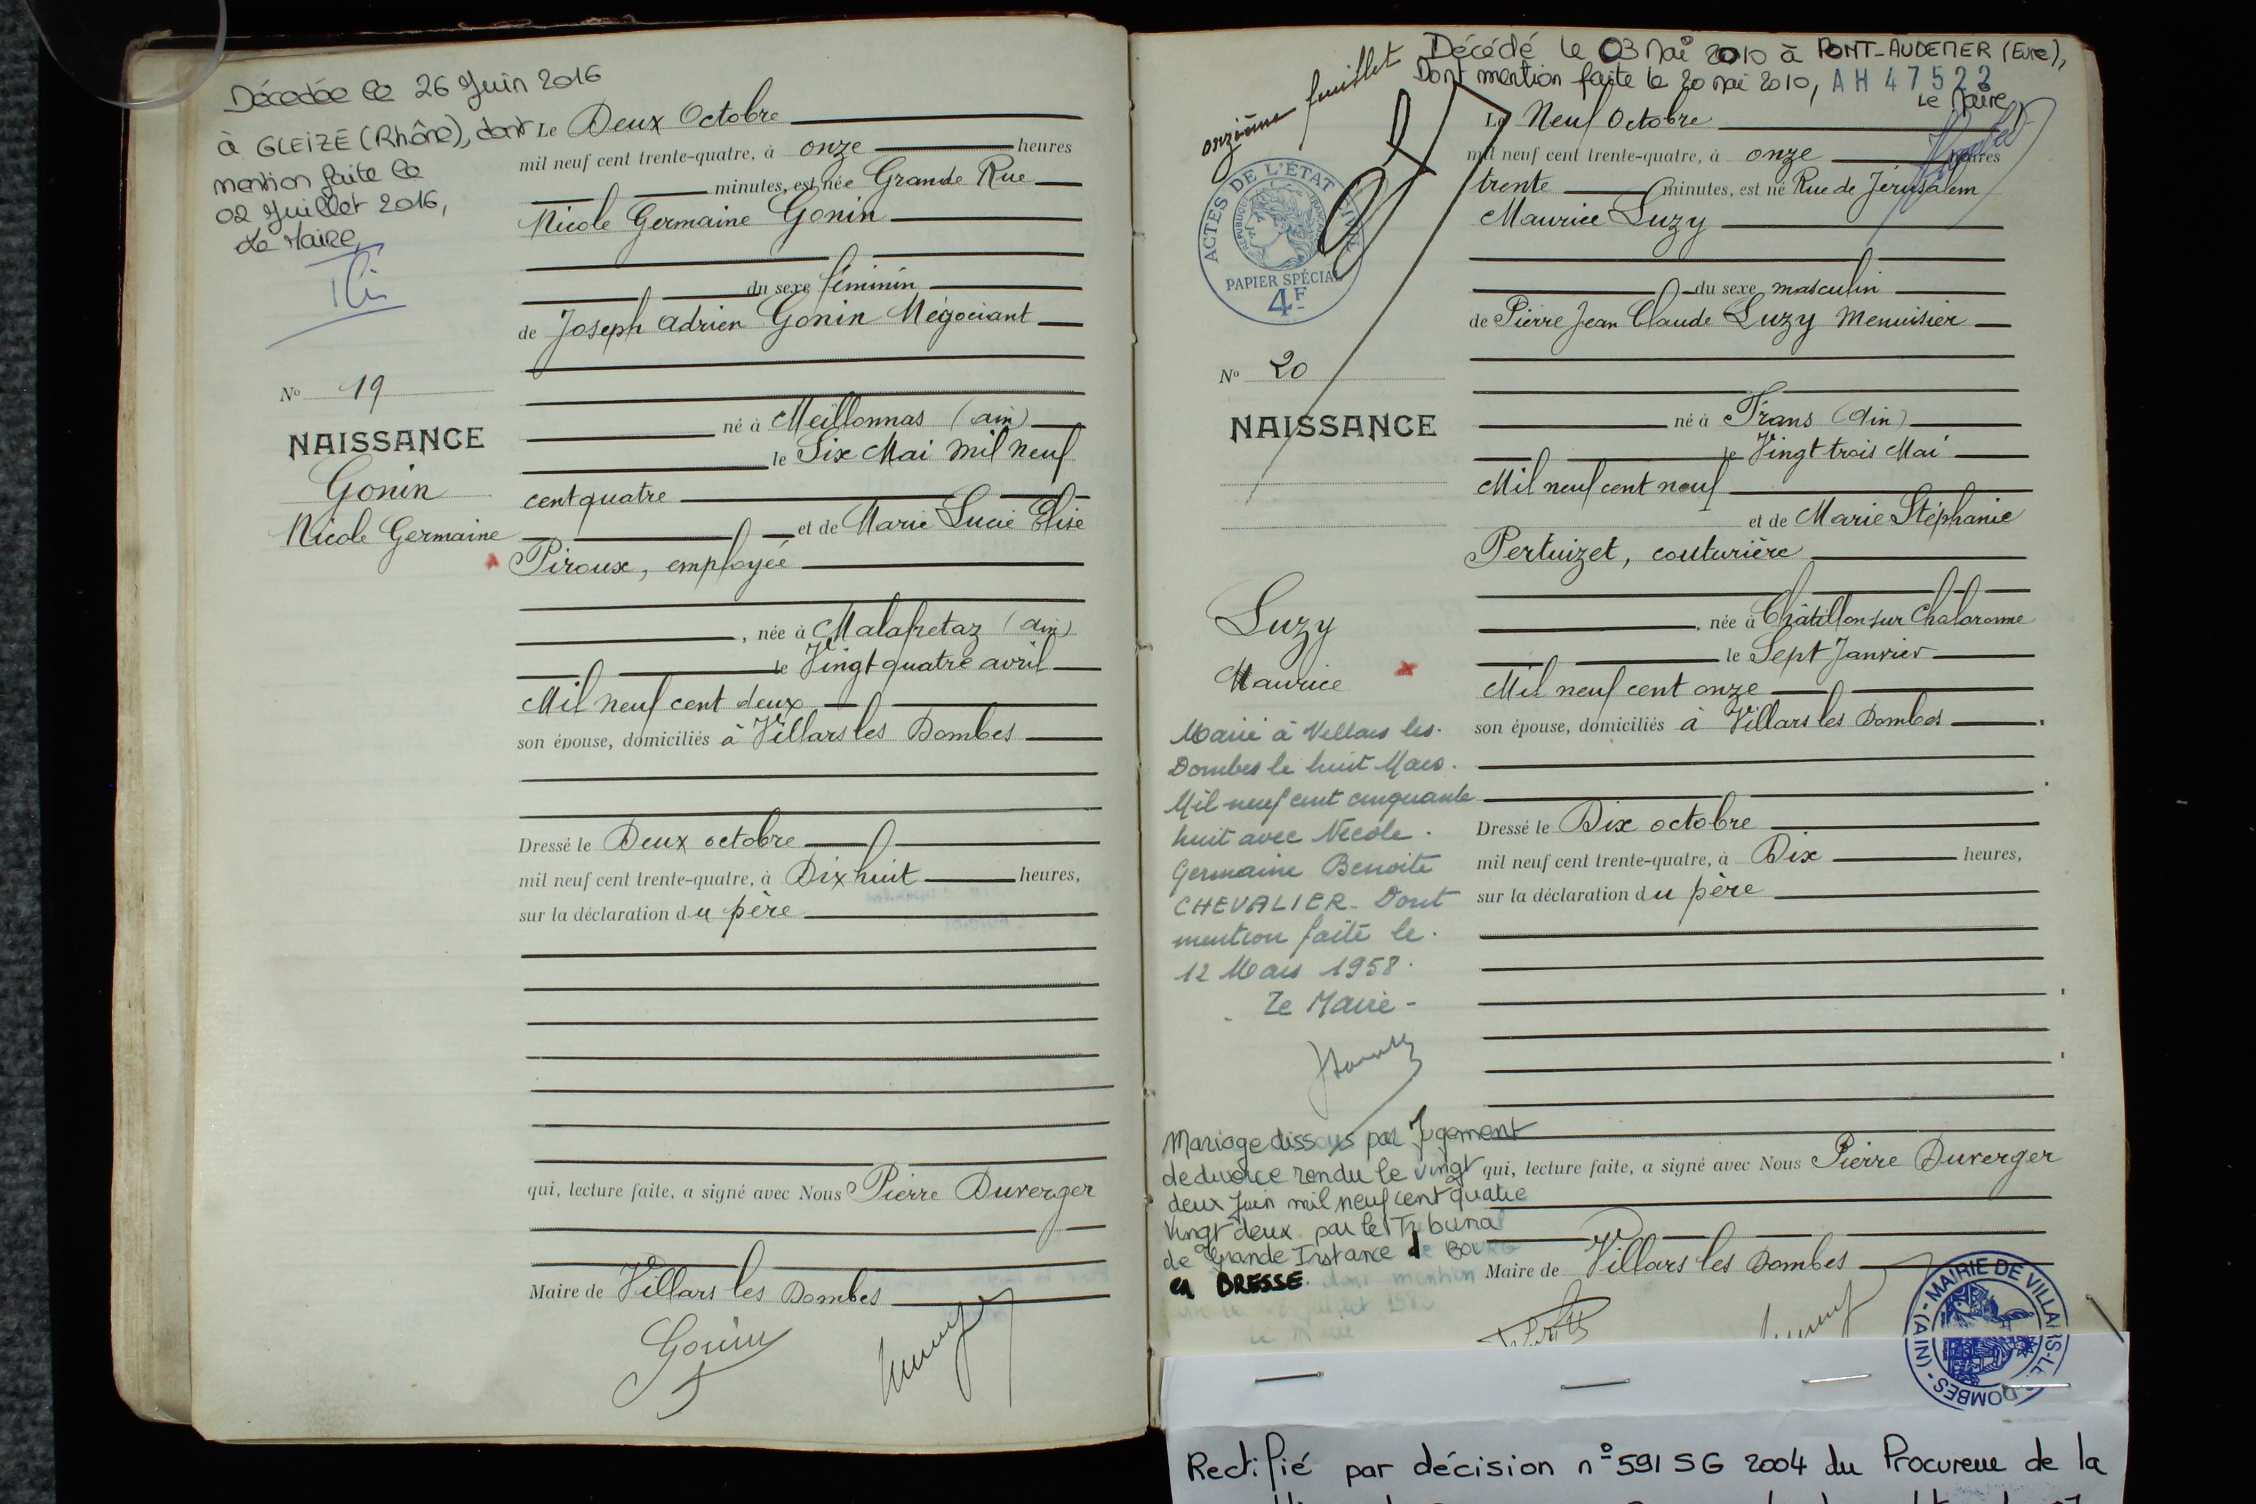 Décédée le 26 Juin 2016
à GLEIZE (Rhône), dont
mention faite le
02 Juillet 2016,
Le Maire
No 19
NAISSANCE
Gonin
Nicole Germaine
Le Deux Octobre
mil neuf cent trente-quatre, à onze heures
minutes, est née Grande Rue
Nicole Germaine Gonin
du sexe féminin
de Joseph Adrien Gonin Négociant
né à Meillonnas (Ain)
le Six Mai mil neuf
cent quatre
et de Marie Lucie Elise
Piroux, employée
, née à Malafretaz (Ain)
le Vingt quatre avril
Mil neuf cent deux
son épouse, domiciliés à Villars les Dombes
Dressé le Deux octobre
mil neuf cent trente-quatre, à Dix huit heures,
sur la déclaration du père
qui, lecture faite, a signé avec Nous Pierre Duverger
Maire de Villars les Dombes
Gonin
onzième feuillet
Décédé le 03 Mai 2010 à PONT-AUDEMER (Eure),
Dont mention faite le 20 mai 2010, AH 47522
Le Maire
ACTES DE L'ÉTAT CIVIL
RÉPUBLIQUE FRANÇAISE
PAPIER SPÉCIAL
4F
No 20
NAISSANCE
Luzy
Maurice
Marié à Villars les
Dombes le huit Mars
Mil neuf cent cinquante
huit avec Nicole
Germaine Benoite
CHEVALIER. Dont
mention faite le
12 Mars 1958.
Le Maire
Mariage dissous par Jugement
de divorce rendu le vingt
deux Juin mil neuf cent quatre
vingt deux par le Tribunal
de Grande Instance de BOURG
en BRESSE. dont mention
Le Neuf Octobre
mil neuf cent trente-quatre, à onze heures
trente minutes, est né Rue de Jérusalem
Maurice Luzy
du sexe masculin
de Pierre Jean Claude Luzy Menuisier
né à Frans (Ain)
le Vingt trois Mai
Mil neuf cent neuf
et de Marie Stéphanie
Pertuizet, couturière
, née à Châtillon sur Chalaronne
le Sept Janvier
Mil neuf cent onze
son épouse, domiciliés à Villars les Dombes
Dressé le Dix octobre
mil neuf cent trente-quatre, à Dix heures,
sur la déclaration du père
qui, lecture faite, a signé avec Nous Pierre Duverger
Maire de Villars les Dombes
MAIRIE DE VILLARS-LES-DOMBES - (AIN)
Rectifié par décision n° 591 SG 2004 du Procureur de la